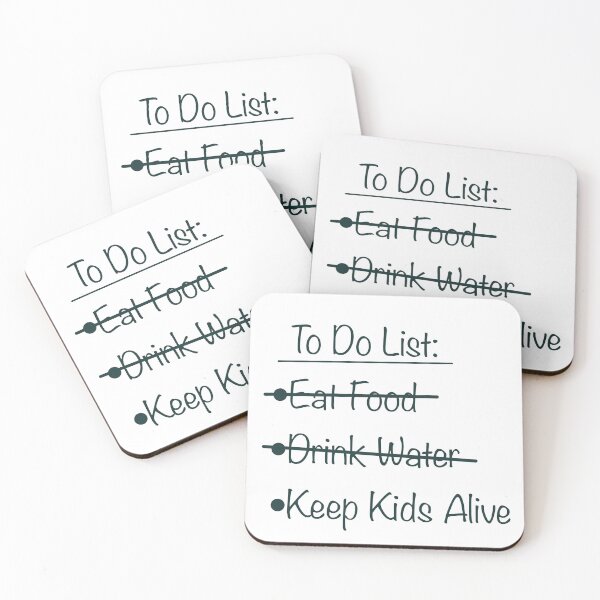 To Do List:
Eat Food
ter
To Do List:
Eat Food
Drink Water
live
To Do List:
Eat Food
Drink Wat
Keep Ki
To Do List:
Eat Food
Drink Water
Keep Kids Alive